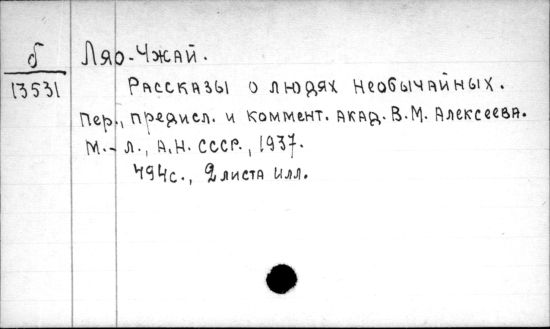 б
13531
Ляо-Чжай.
Рассказы о людях необычайных.
Пер., предисл. и коммент. акад. В.М. Алексеева.
М.-Л., А.Н. СССР, 1937.
494с., 2 листа илл.